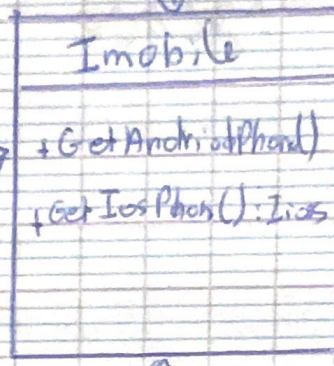 Imobile
+GetAndriodPhone()
+Get IosPhon():Iios